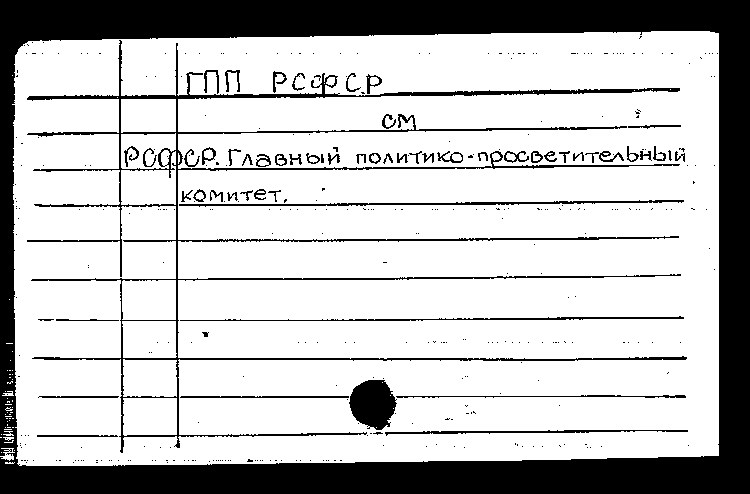 ГПП РСФСР
см
РСФСР. Главный политико-просветительный
комитет.